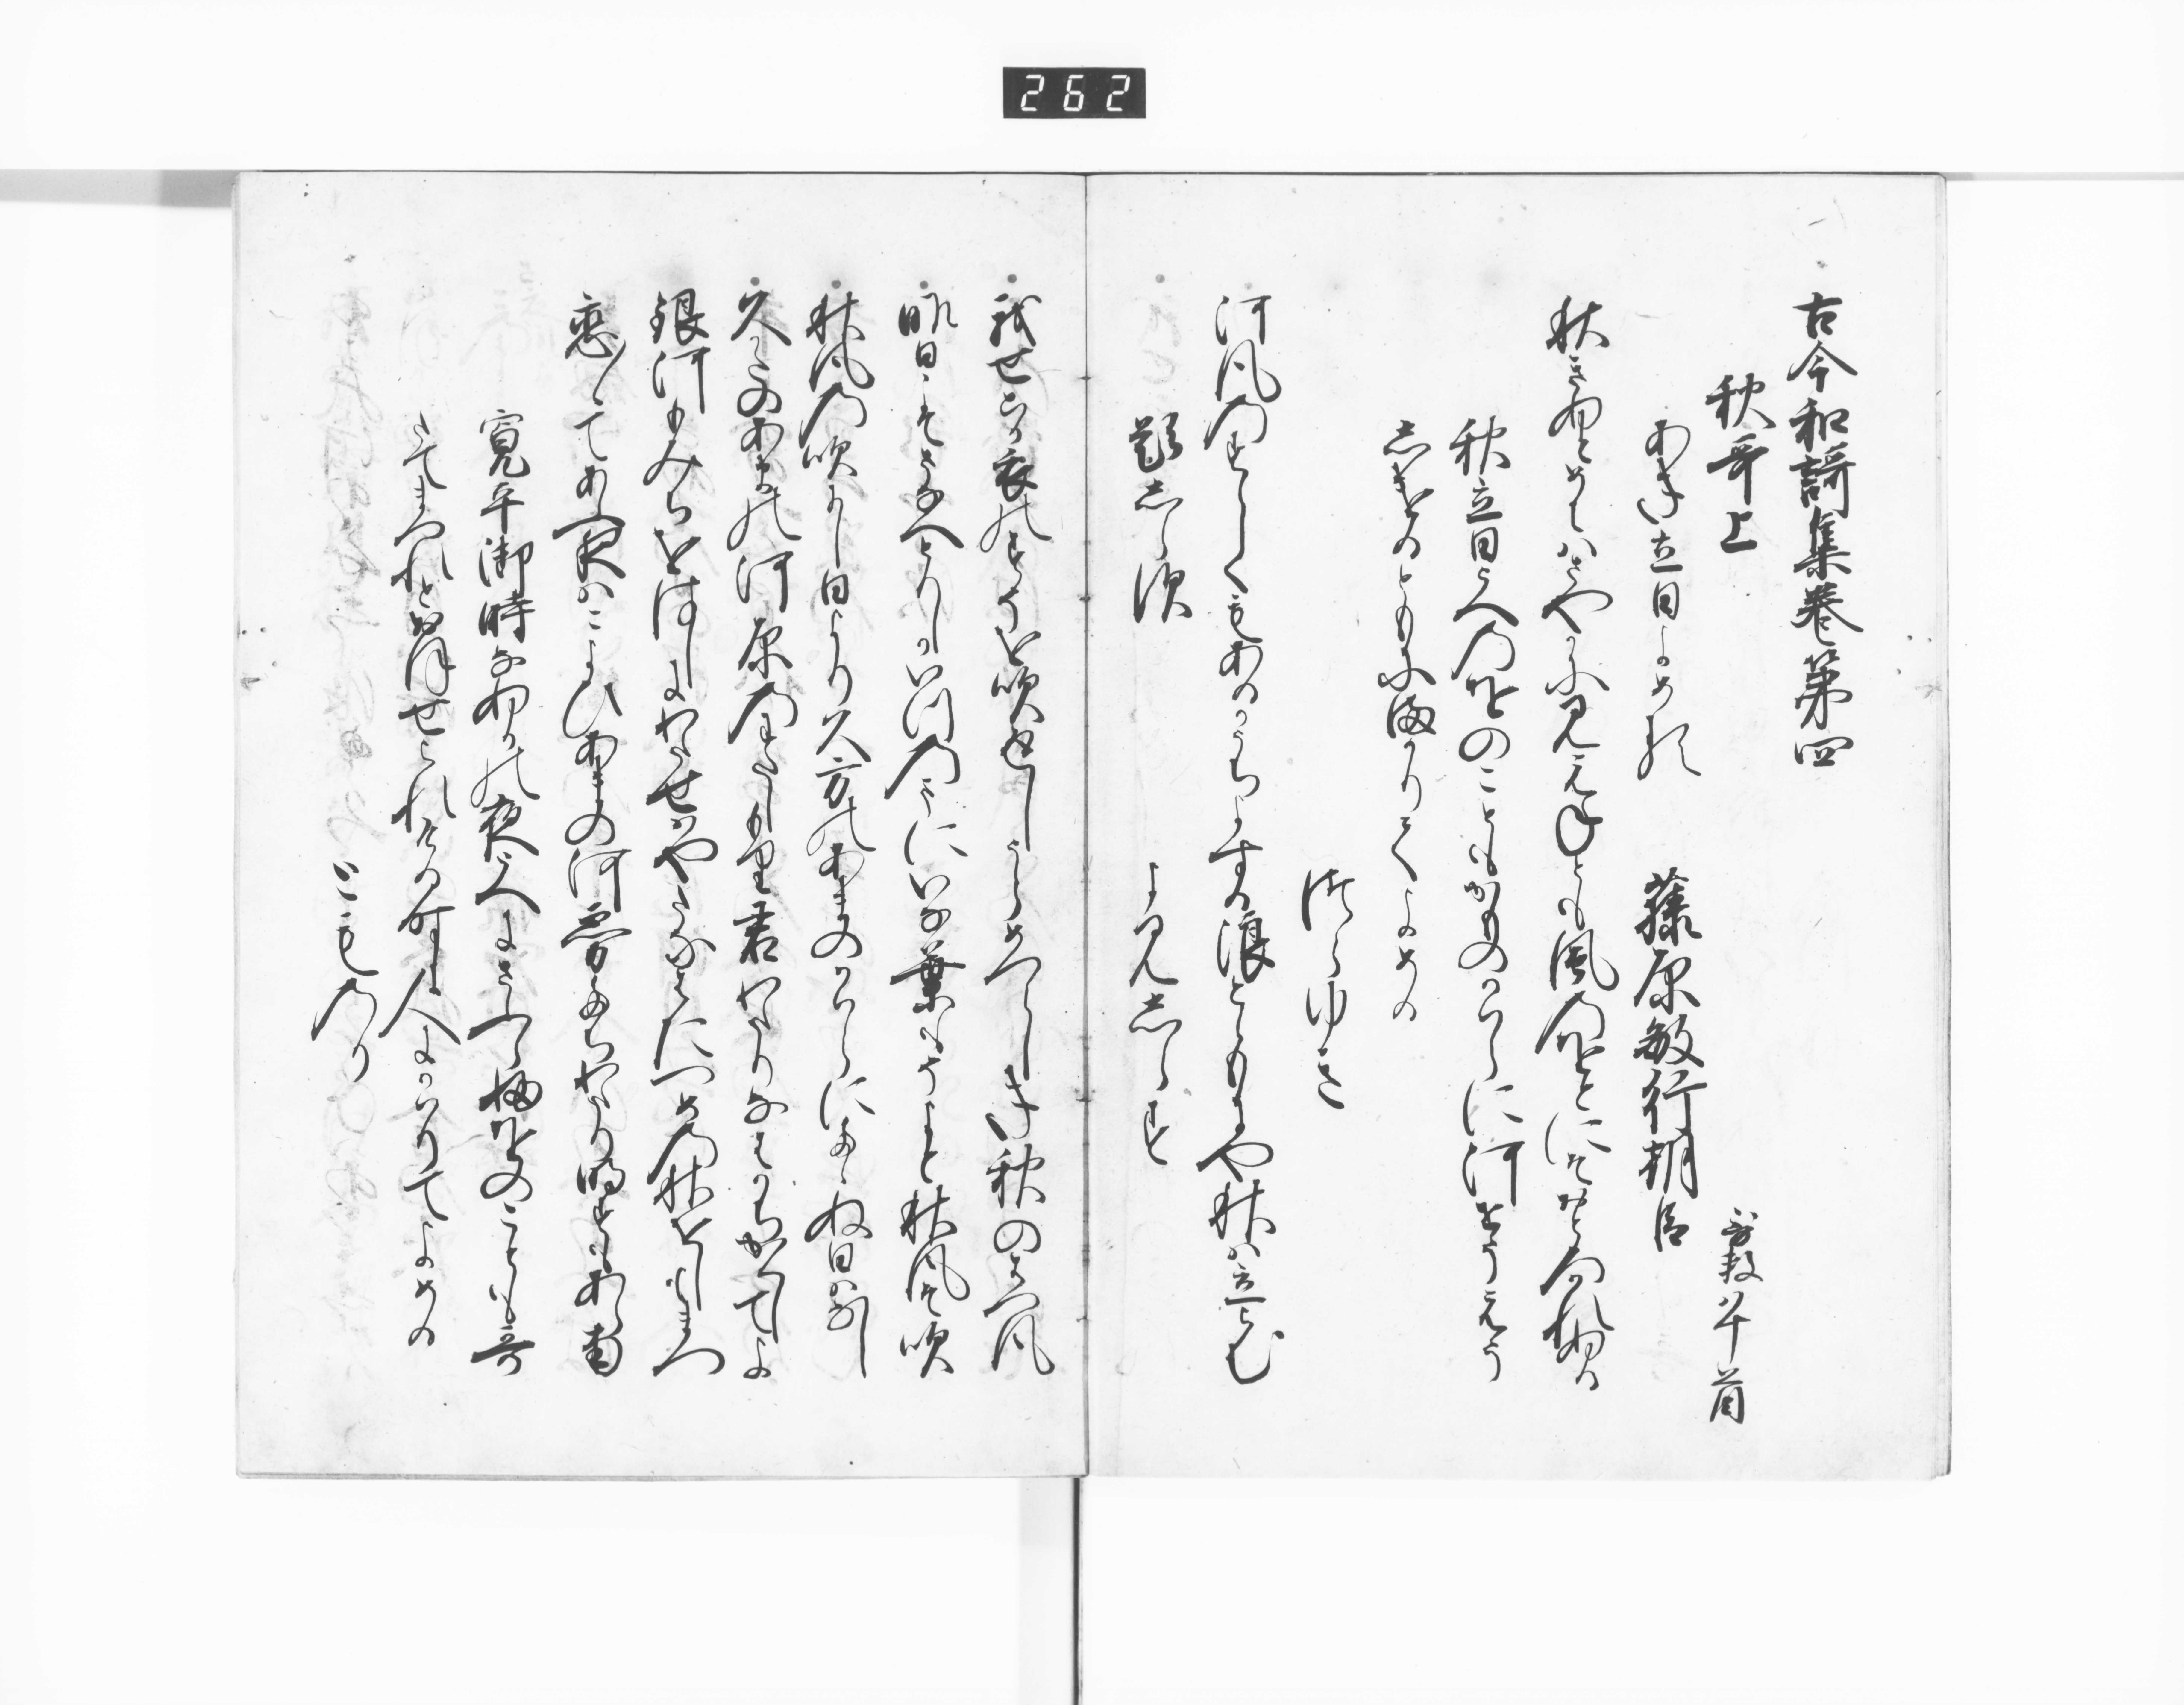 262
古今和謌集巻第四
秋哥上
哥数八十首
あき立日よめる
藤原敏行朝臣
秋きぬとめにはさやかに見えねとも風のをとにそおとろかれぬる
秋立日うへのをのこともかものかはらに河せうえう
しけるともにまかりてよめる
つらゆき
河風のすゝしくもあるかうちよする浪とゝもにや秋は立らむ
題しらす
よみ人しらす
我せこか衣のすそを吹返しうらめつらしき秋のはつ風
昨日こそさなへとりしかいつのまにいな葉そよき秋風そ吹
秋風の吹にし日より久方のあまのかはらにたゝぬ日はなし
久かたのあまの河原のわたしもり君わたりなはかちかくしてよ
銀河もみちをはしにわたせはやたなはたつめの秋をしもまつ
恋〳〵てあふ夜はこよひあまの河霧たちわたり明すもあら南
寛平御時なぬかの夜うへにさふらふをのことも哥
たてまつれとおほせられける時に人にかはりてよめる
とものり